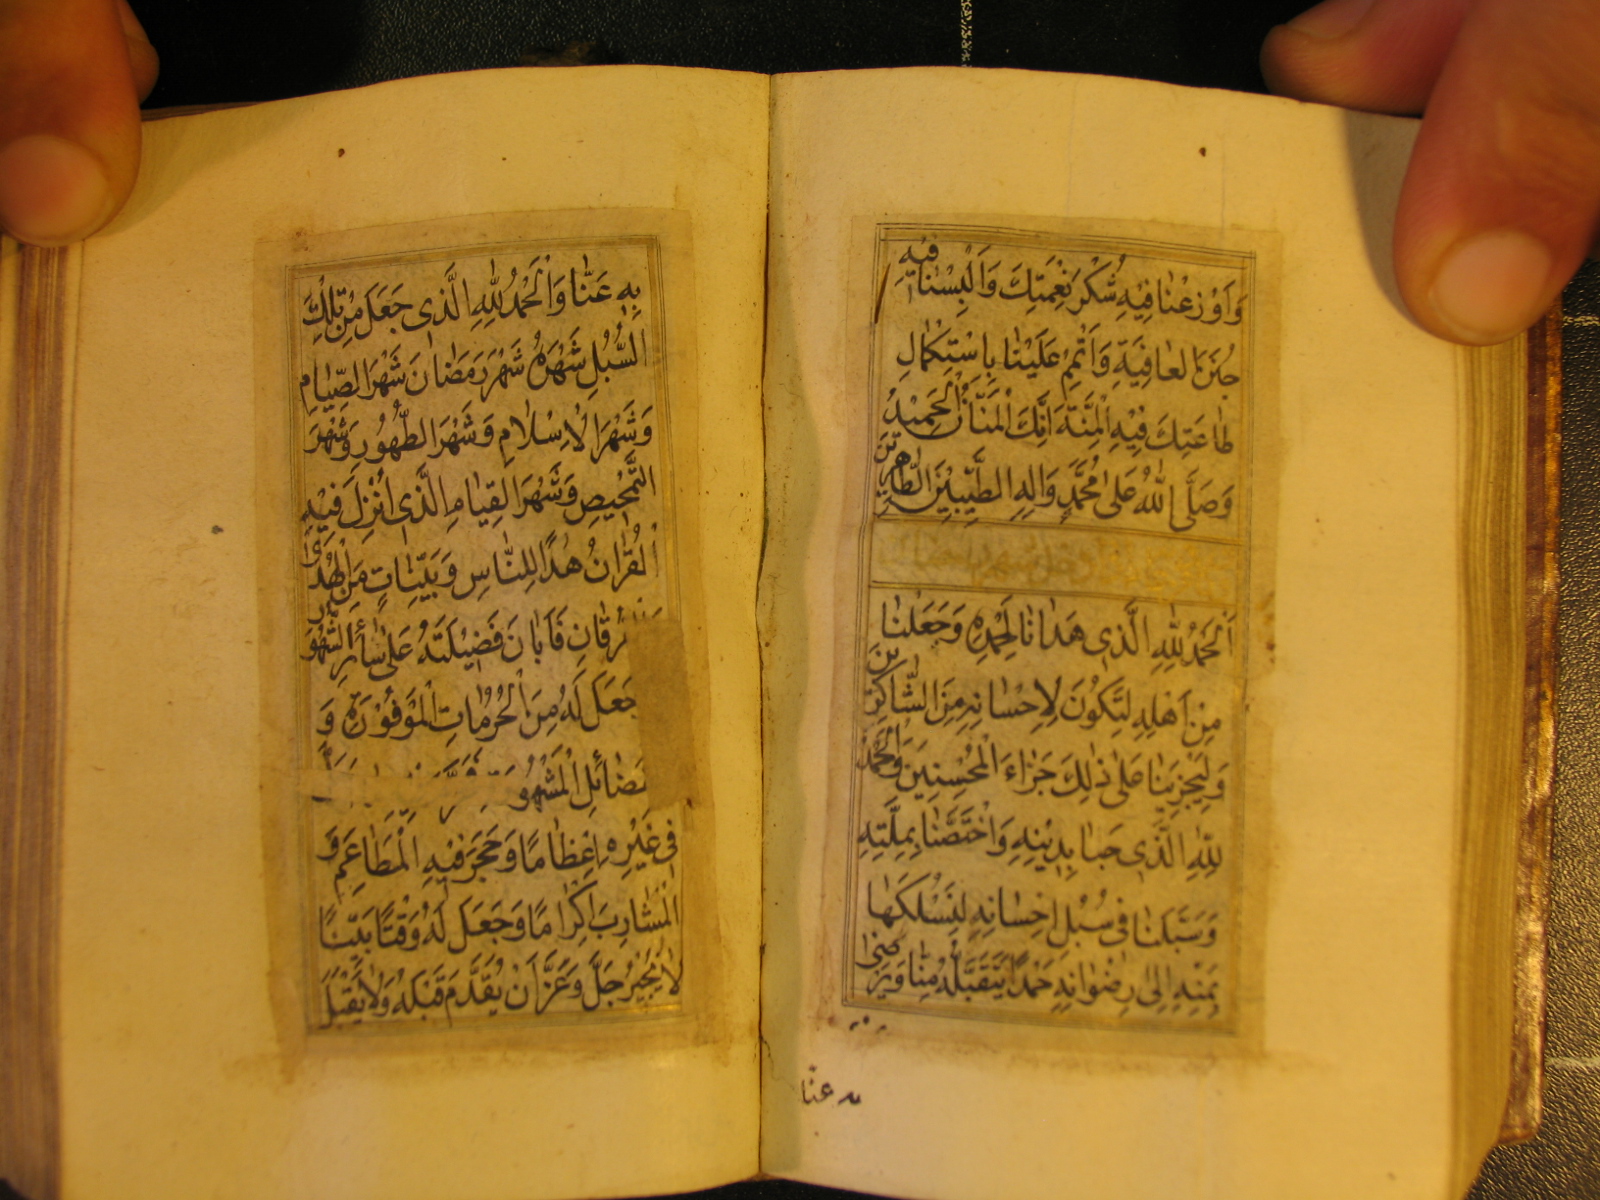 فيه
وَاَوْزِعْنا فيهِ شُكْرَ نِعْمَتِكَ وَاَلْبِسْنا
جُنَنَ العافِيَةِ وَاَتْمِمْ عَلَيْنا بِاسْتِكْمالِ
طاعَتِكَ فيهِ الْمِنَّةَ اَنَّكَ الْمَنّانُ الْحَميدُ
وَصَلَّى اللهُ عَلى مُحَمَّدٍ وَالِهِ الطَّيِّبينَ الطّاهِرينَ
اَلْحَمْدُ لِلّهِ الَّذى هَدانا لِحَمْدِهِ وَجَعَلَنا
مِنْ اَهْلِهِ لِنَكُونَ لِاِحْسانِهِ مِنَ الشّاكِرينَ
وَلِيَجْزِيَنا عَلى ذلِكَ جَزاءَ الْمُحْسِنينَ وَالْحَمْدُ
لِلّهِ الَّذى حَبانا بِدينِهِ وَاخْتَصَّنا بِمِلَّتِهِ
وَسَبَّلَنا فى سُبُلِ اِحْسانِهِ لِنَسْلُكَها
بِمَنِّهِ اِلى رِضْوانِهِ حَمْدًا يَتَقَبَّلُهُ مِنّا وَيَرْضى
به عنّا
بِهِ عَنّا وَالْحَمْدُ لِلّهِ الَّذى جَعَلَ مِنْ تِلْكَ
السُّبُلِ شَهْرَهُ شَهْرَ رَمَضانَ شَهْرَ الصِّيامِ
وَشَهْرَ الْاِسْلامِ وَشَهْرَ الطَّهُورِ وَشَهْرَ
التَّمْحيصِ وَشَهْرَ القِيامِ الَّذى اُنْزِلَ فيهِ
الْقُرْانُ هُدًا لِلنّاسِ وَبَيِّناتٍ مِنَ الْهُدى
فَاَبانَ فَضيلَتَهُ عَلى سائِرِ الشُّهُورِ
جَعَلَ لَهُ مِنَ الْحُرُماتِ الْمَوْفُورَةِ وَ
الْمَشْهُورَةِ
فى غَيْرِهِ اِعْظامًا وَحَجَرَ فيهِ الْمَطاعِمَ وَ
الْمَشارِبَ اِكْرامًا وَجَعَلَ لَهُ وَقْتًا بَيِّنًا
لا يُجيزُ جَلَّ وَعَزَّ اَنْ يُقَدَّمَ قَبْلَهُ وَلا يَقْبَلُ